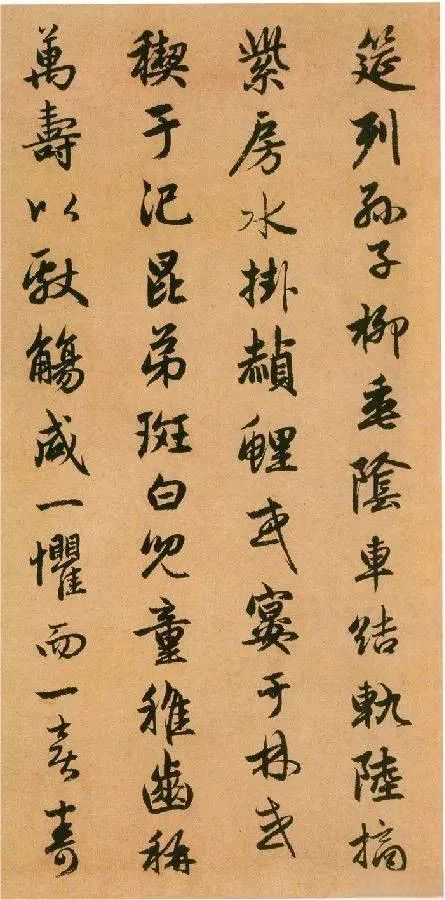 筵列孫子柳垂陰車結軌陸摘
紫房水掛赬鯉或宴于林或
禊于汜昆弟斑白兒童稚齒稱
萬壽以獻觴咸一懼而一喜壽